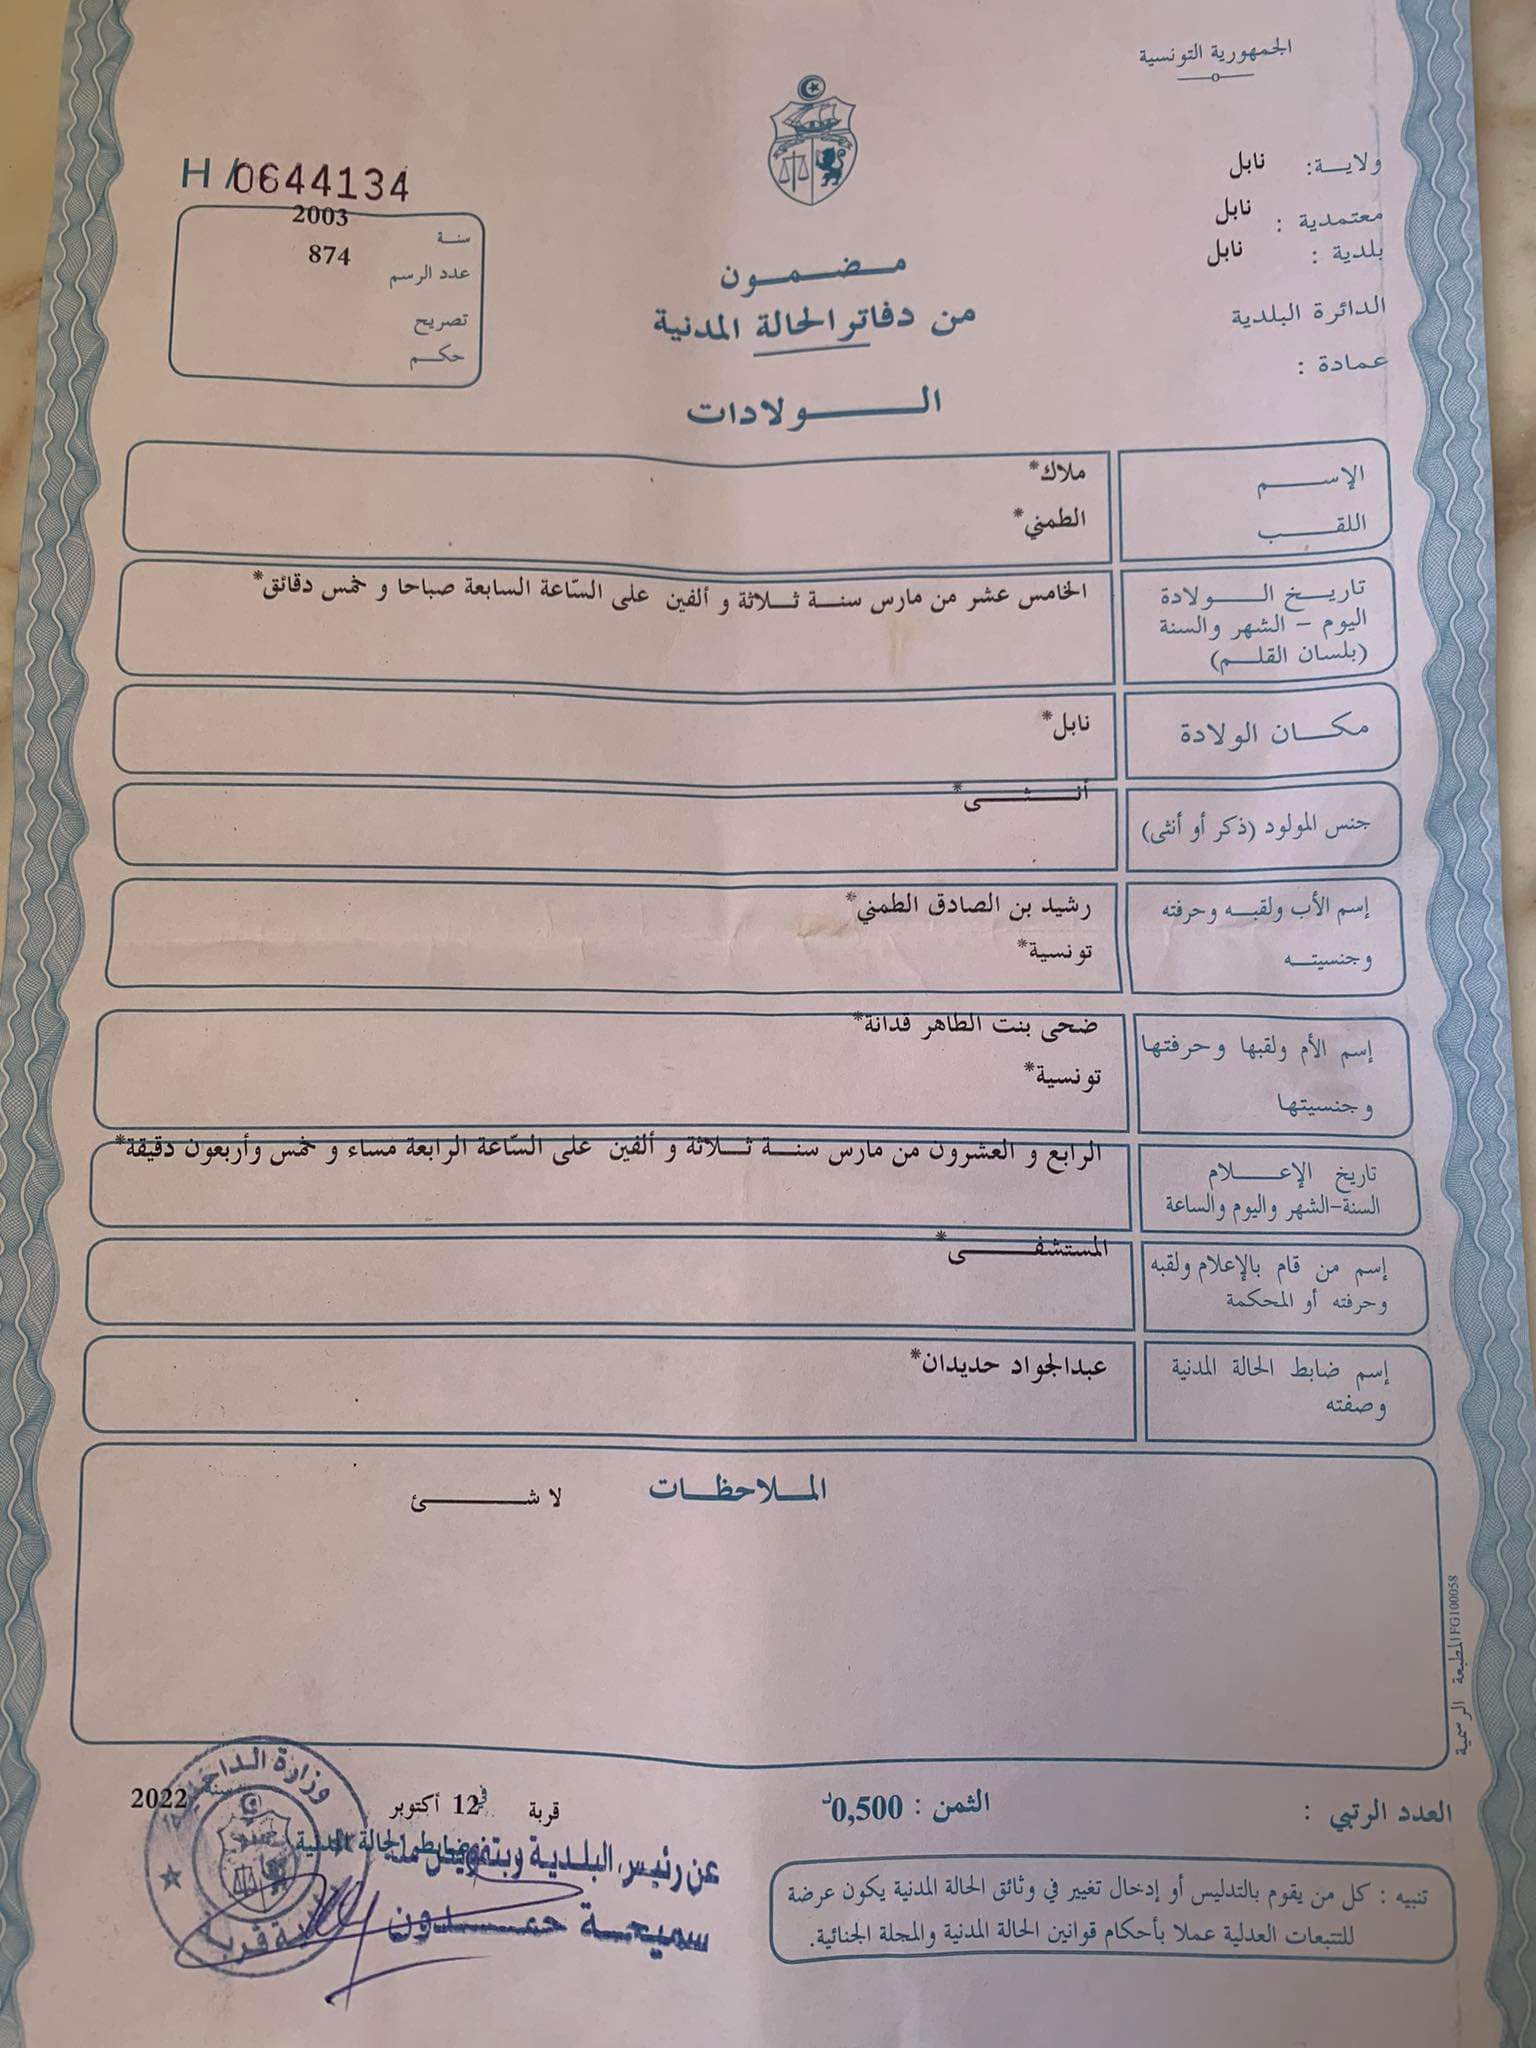 الجمهورية التونسية
ولايــة: نابل
معتمدية : نابل
بلدية : نابل
الدائرة البلدية
عمادة :
H /0644134
سنة 2003
عدد الرسم 874
تصريح
حكم
مضمون
من دفاتر الحالة المدنية
الــولادات
الإســم ملاك*
اللقــب الطمني*
تاريخ الــولادة
اليوم – الشهر والسنة
(بلسان القلم)
الخامس عشر من مارس سنة ثلاثة و ألفين على السّاعة السابعة صباحا و خمس دقائق*
مكــان الولادة نابل*
جنس المولود (ذكر أو أنثى) أنــثــى*
إسم الأب ولقبه وحرفته رشيد بن الصادق الطمني*
وجنسيته تونسية*
إسم الأم ولقبها وحرفتها ضحى بنت الطاهر قدانة*
وجنسيتها تونسية*
تاريخ الإعــلام
السنة-الشهر واليوم والساعة
الرابع و العشرون من مارس سنة ثلاثة و ألفين على السّاعة الرابعة مساء و خمس وأربعون دقيقة*
إسم من قام بالإعلام ولقبه
وحرفته أو المحكمة
المستشفــى*
إسم ضابط الحالة المدنية
وصفته
عبدالجواد حديدان*
الملاحظات
لا شــئ
المطبعة الرسمية FG100058
العدد الرتبي :
الثمن : 0,500د
قربة في 12 أكتوبر سنة 2022
ضابط الحالة المدنية
عن رئيس البلدية وبتفويض منه
سميحــة حمــدون
وزارة الداخلية
تنبيه : كل من يقوم بالتدليس أو إدخال تغيير في وثائق الحالة المدنية يكون عرضة
للتتبعات العدلية عملا بأحكام قوانين الحالة المدنية والمجلة الجنائية.